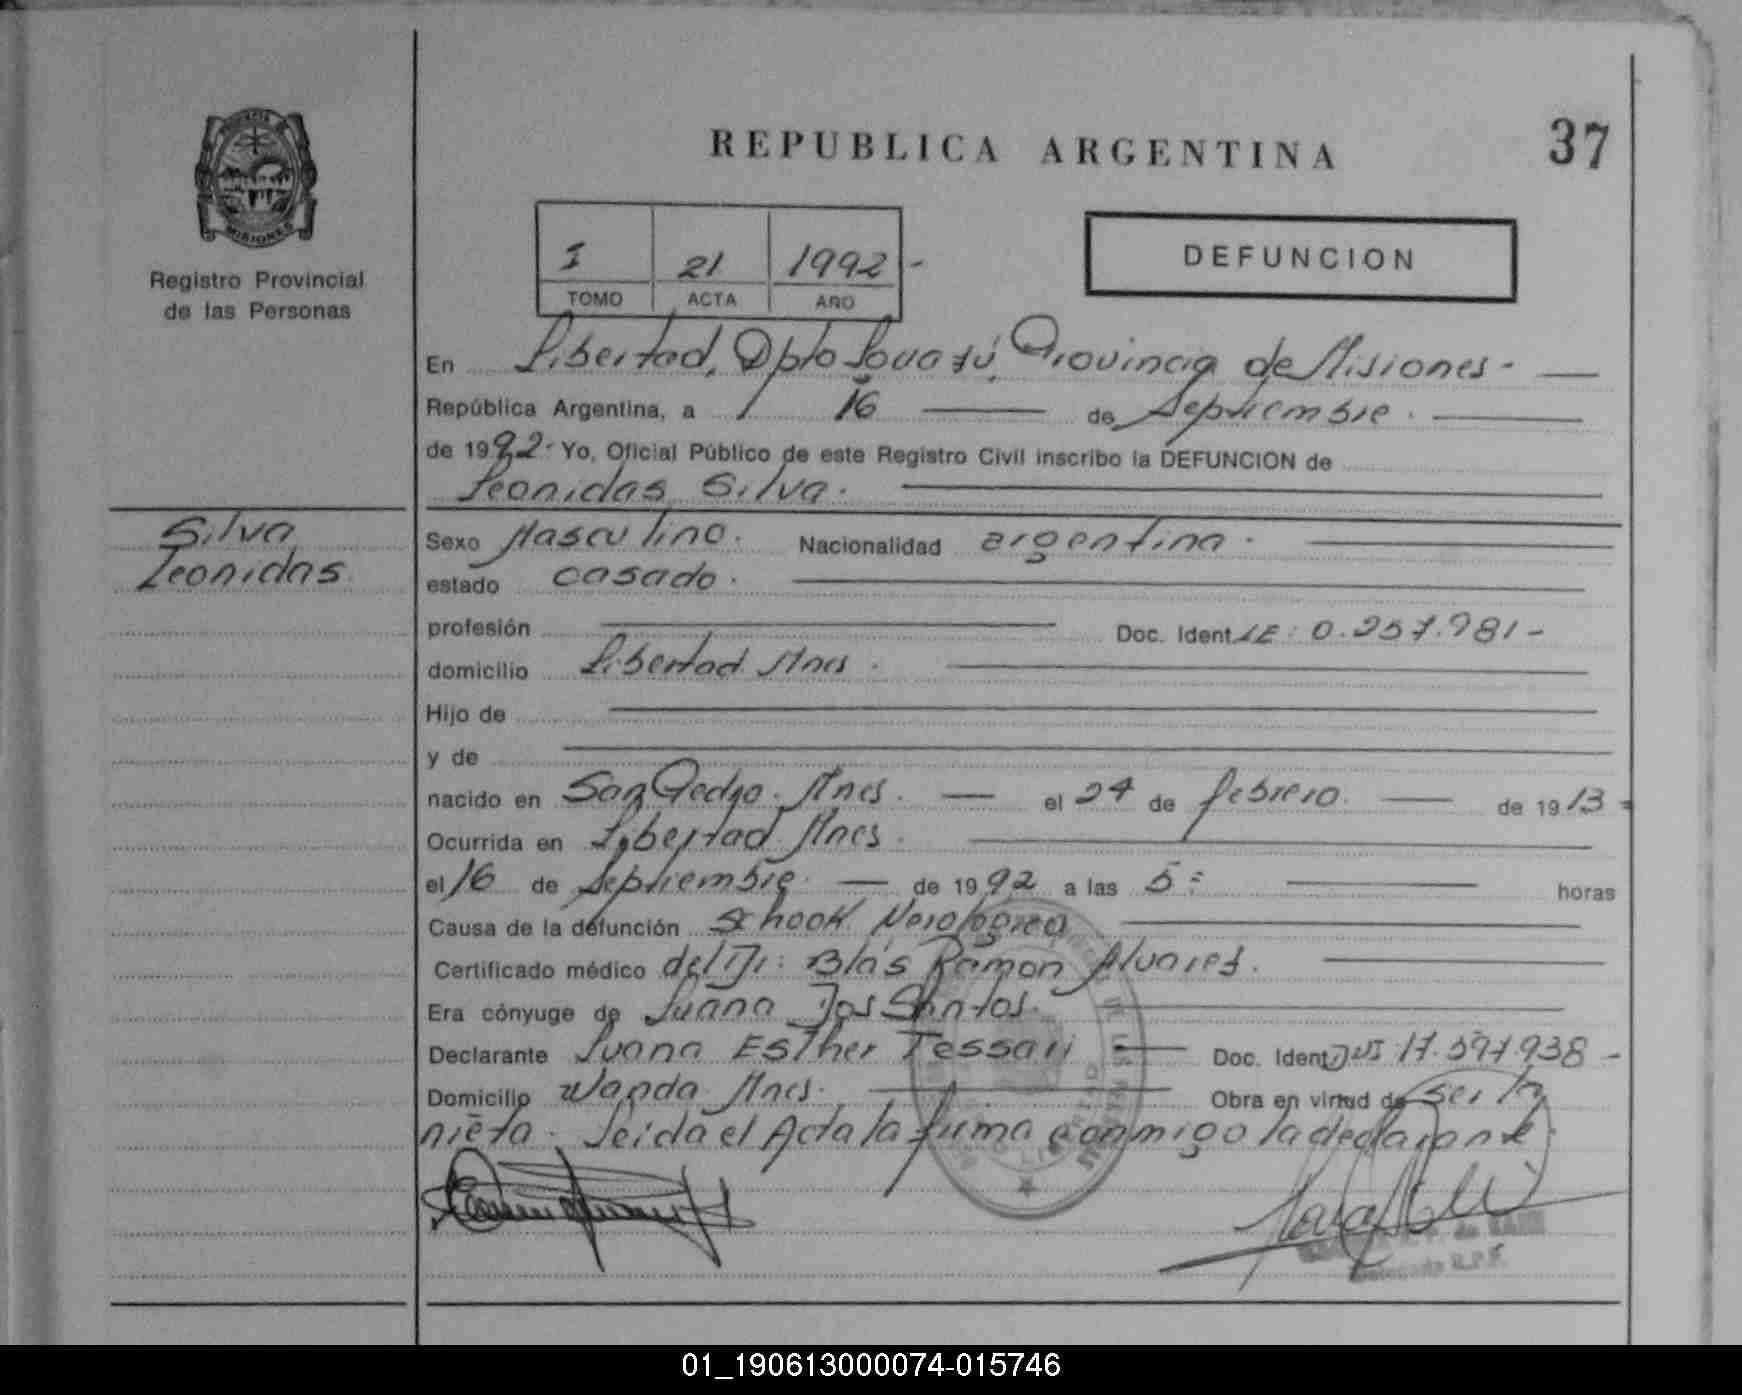 REPUBLICA ARGENTINA
37
PROVINCIA DE
MISIONES
Registro Provincial
de las Personas
I 21 1992 -
TOMO ACTA AÑO
DEFUNCION
En Libertad, Dpto Iguazú, Provincia de Misiones -
República Argentina, a 16 de Septiembre.
de 1992. Yo, Oficial Público de este Registro Civil inscribo la DEFUNCION de
Leonidas Silva.
Silva
Leonidas
Sexo Masculino. Nacionalidad argentina.
estado casado.
profesión Doc. Ident. LE: 0.257.981-
domicilio Libertad Mnes.
Hijo de
y de
nacido en San Pedro. Mnes. el 24 de febrero. de 1913=
Ocurrida en Libertad Mnes.
el 16 de Septiembre. de 1992 a las 5: horas
Causa de la defunción Schook Nerologico
Certificado médico del Dr: Blás Ramon Alvares.
Era cónyuge de Juana Dos Santos.
Declarante Juana Esther Tessari Doc. Ident. DNI 17.597.938-
Domicilio Wanda Mnes. Obra en virtud de ser la
nieta. Leida el Acta la firma conmigo la declarante.
Delegada R.P.P.
01_190613000074-015746